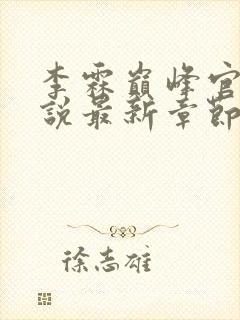 李霖巔峰官
說最新章節
徐志雄